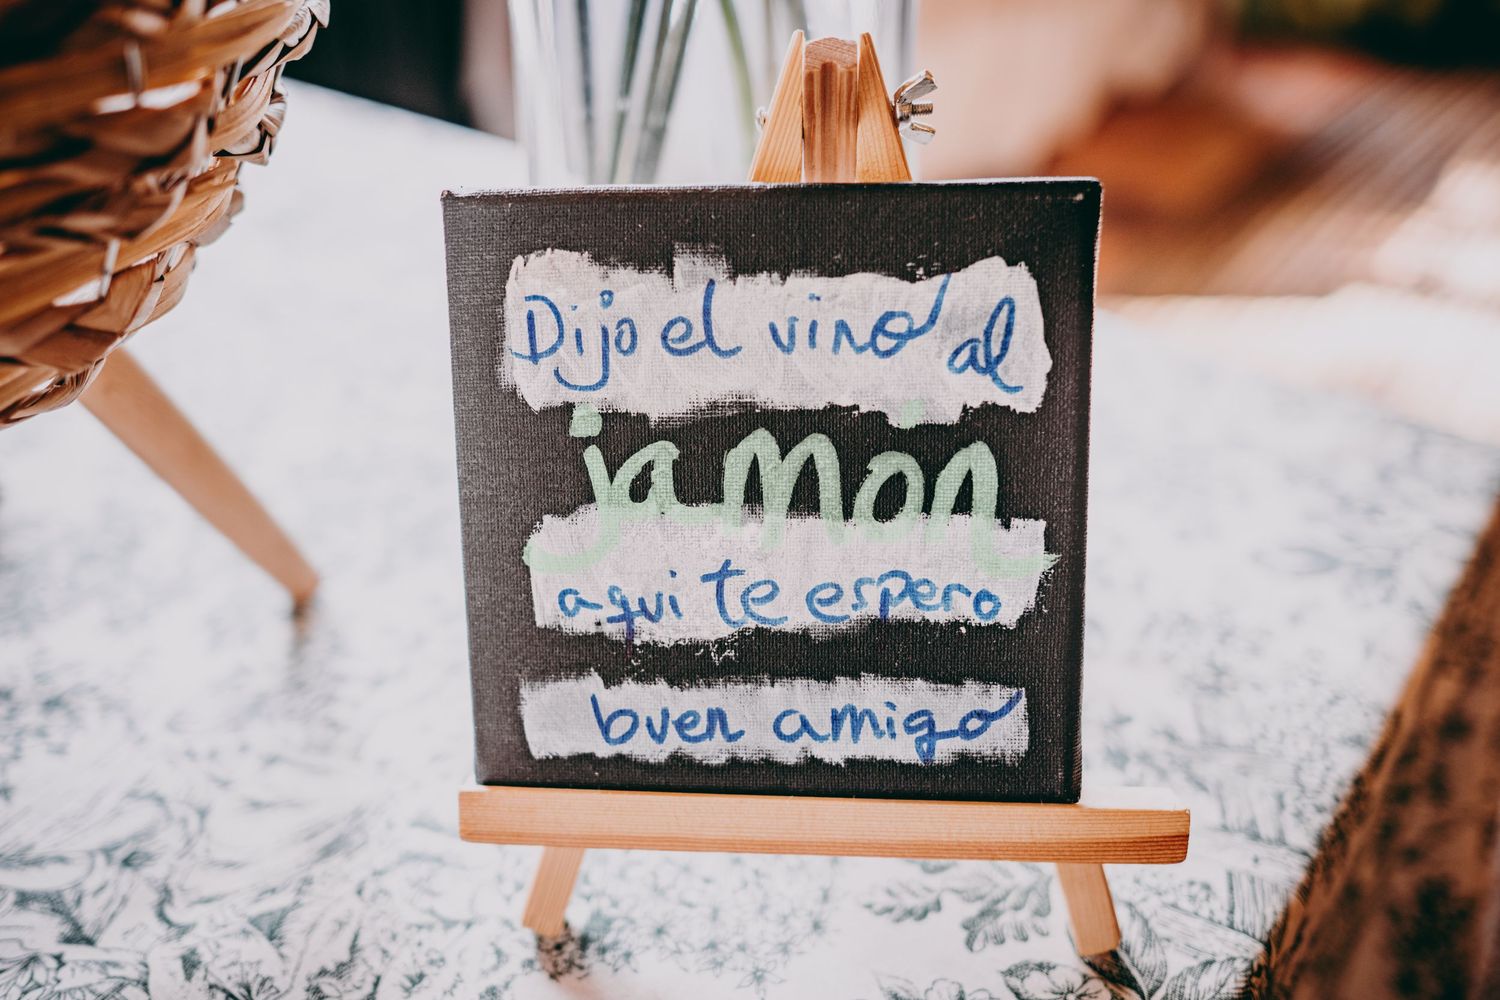 Dijo el vino al
jamón
aqui te espero
buen amigo